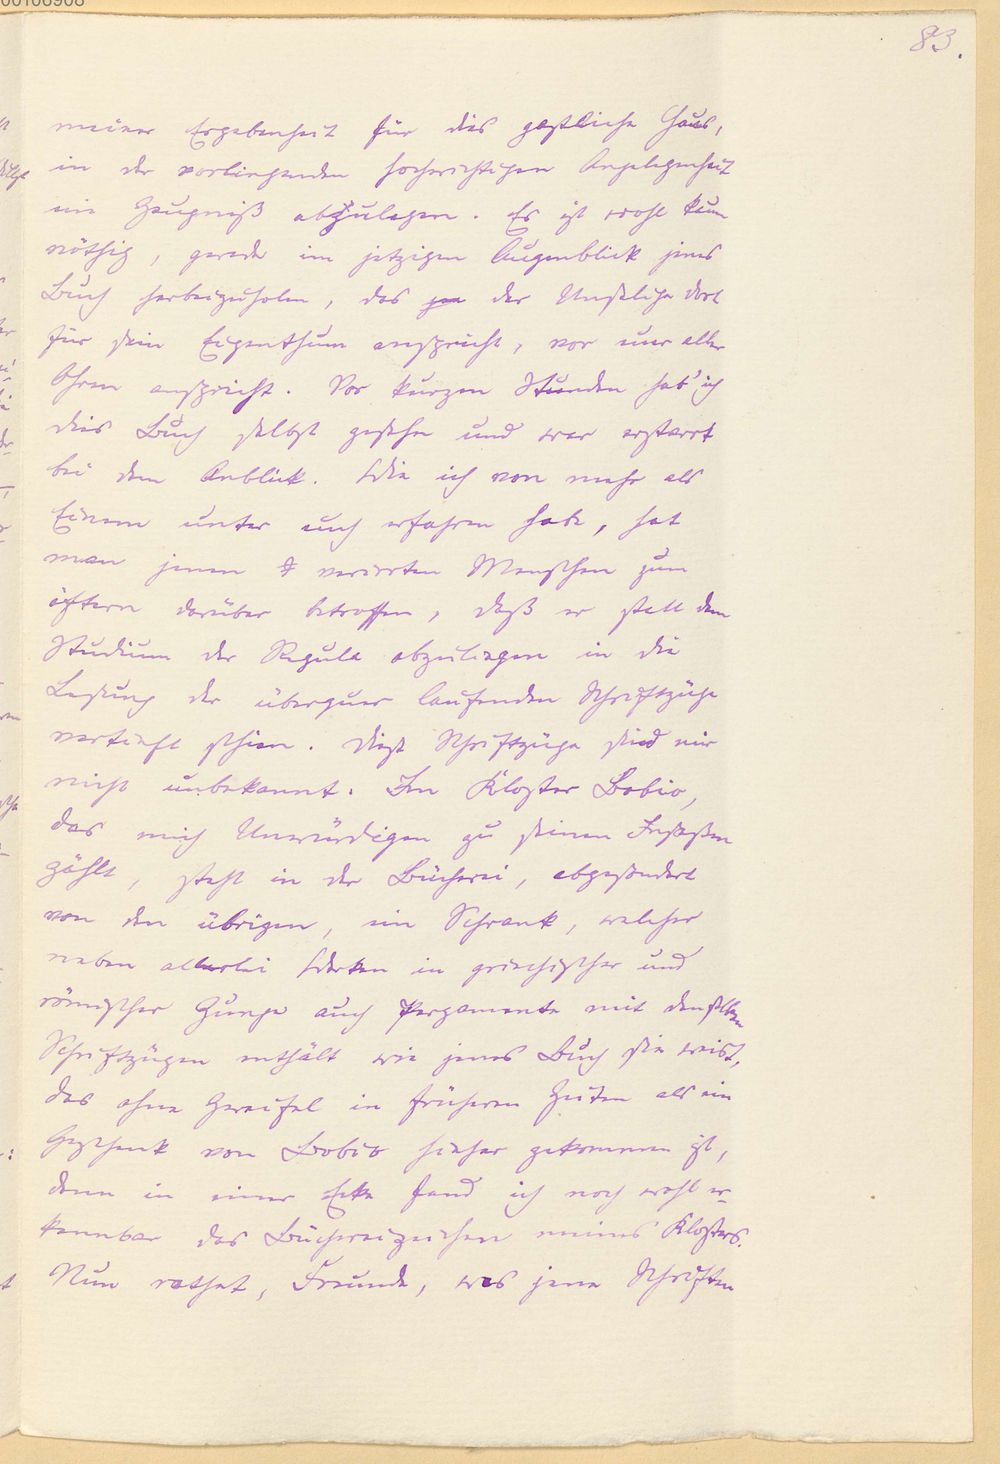 83.
meiner Ergebenheit für dies gastliche Haus,
in der vorliegenden hochwichtigen Angelegenheit
ein Zeugniß abzulegen. Es ist wohl kaum
nöthig, gerade im jetzigen Augenblick jenes
Buch herbeizuholen, das der Unselige dort
für sein Eigenthum anspricht, vor unser aller
Ohren anspricht. Vor kurzen Stunden hab' ich
dies Buch selbst gesehn und war erstarrt
bei dem Anblick. Wie ich von mehr als
Einem unter euch erfahren habe, hat
man jenen verirrten Menschen zum
öftern darüber betroffen, daß er statt dem
Studium der Regula obzuliegen in die
Lesung der überquer laufenden Schriftzüge
vertieft schien. Diese Schriftzüge sind mir
nicht unbekannt. Im Kloster Bobio,
das mich Unwürdigen zu seinen Insassen
zählt, steht in der Bücherei, abgesondert
von den übrigen, ein Schrank, welcher
neben allerlei Werken in griechischer und
römischer Zunge auch Pergamente mit denselben
Schriftzügen enthält wie jenes Buch sie weist,
das ohne Zweifel in früheren Zeiten als ein
Geschenk von Bobio hieher gekommen ist,
denn in einer Ecke fand ich noch wohl er-
kennbar das Büchereizeichen meines Klosters.
Nun rathet, Freunde, was jene Schriften